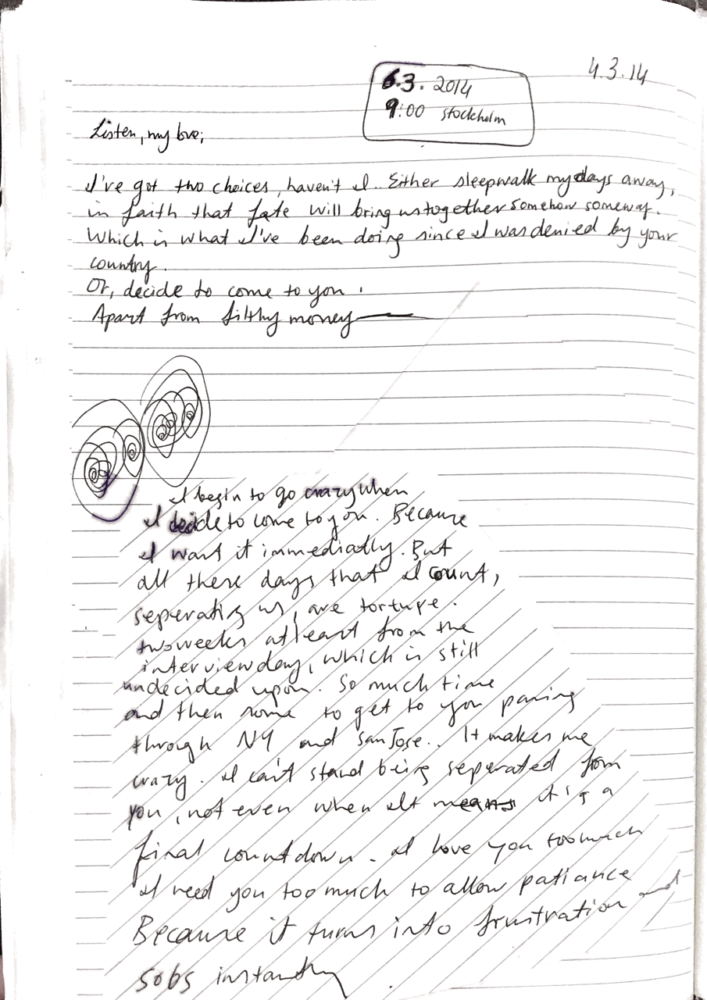 4.3.14
6.3. 2014
9:00 Stockholm
Listen, my love;
I've got two choices, haven't I.. Either sleepwalk my days away,
in faith that fate will bring us together somehow someway.
Which is what I've been doing since I was denied by your
country.
Or, decide to come to you.
Apart from filthy money
I begin to go crazy when
I decide to come to you. Because
I want it immediatly. But
all these days that I count,
seperating us, are torture.
two weeks at least from the
interview day, which is still
undecided upon. So much time
and then some to get to you passing
through NY and San Jose.. It makes me
crazy. I can't stand being seperated from
you, not even when it means it's a
final countdown. I love you too much
I need you too much to allow patiance
Because it turns into frustration and
sobs instantly